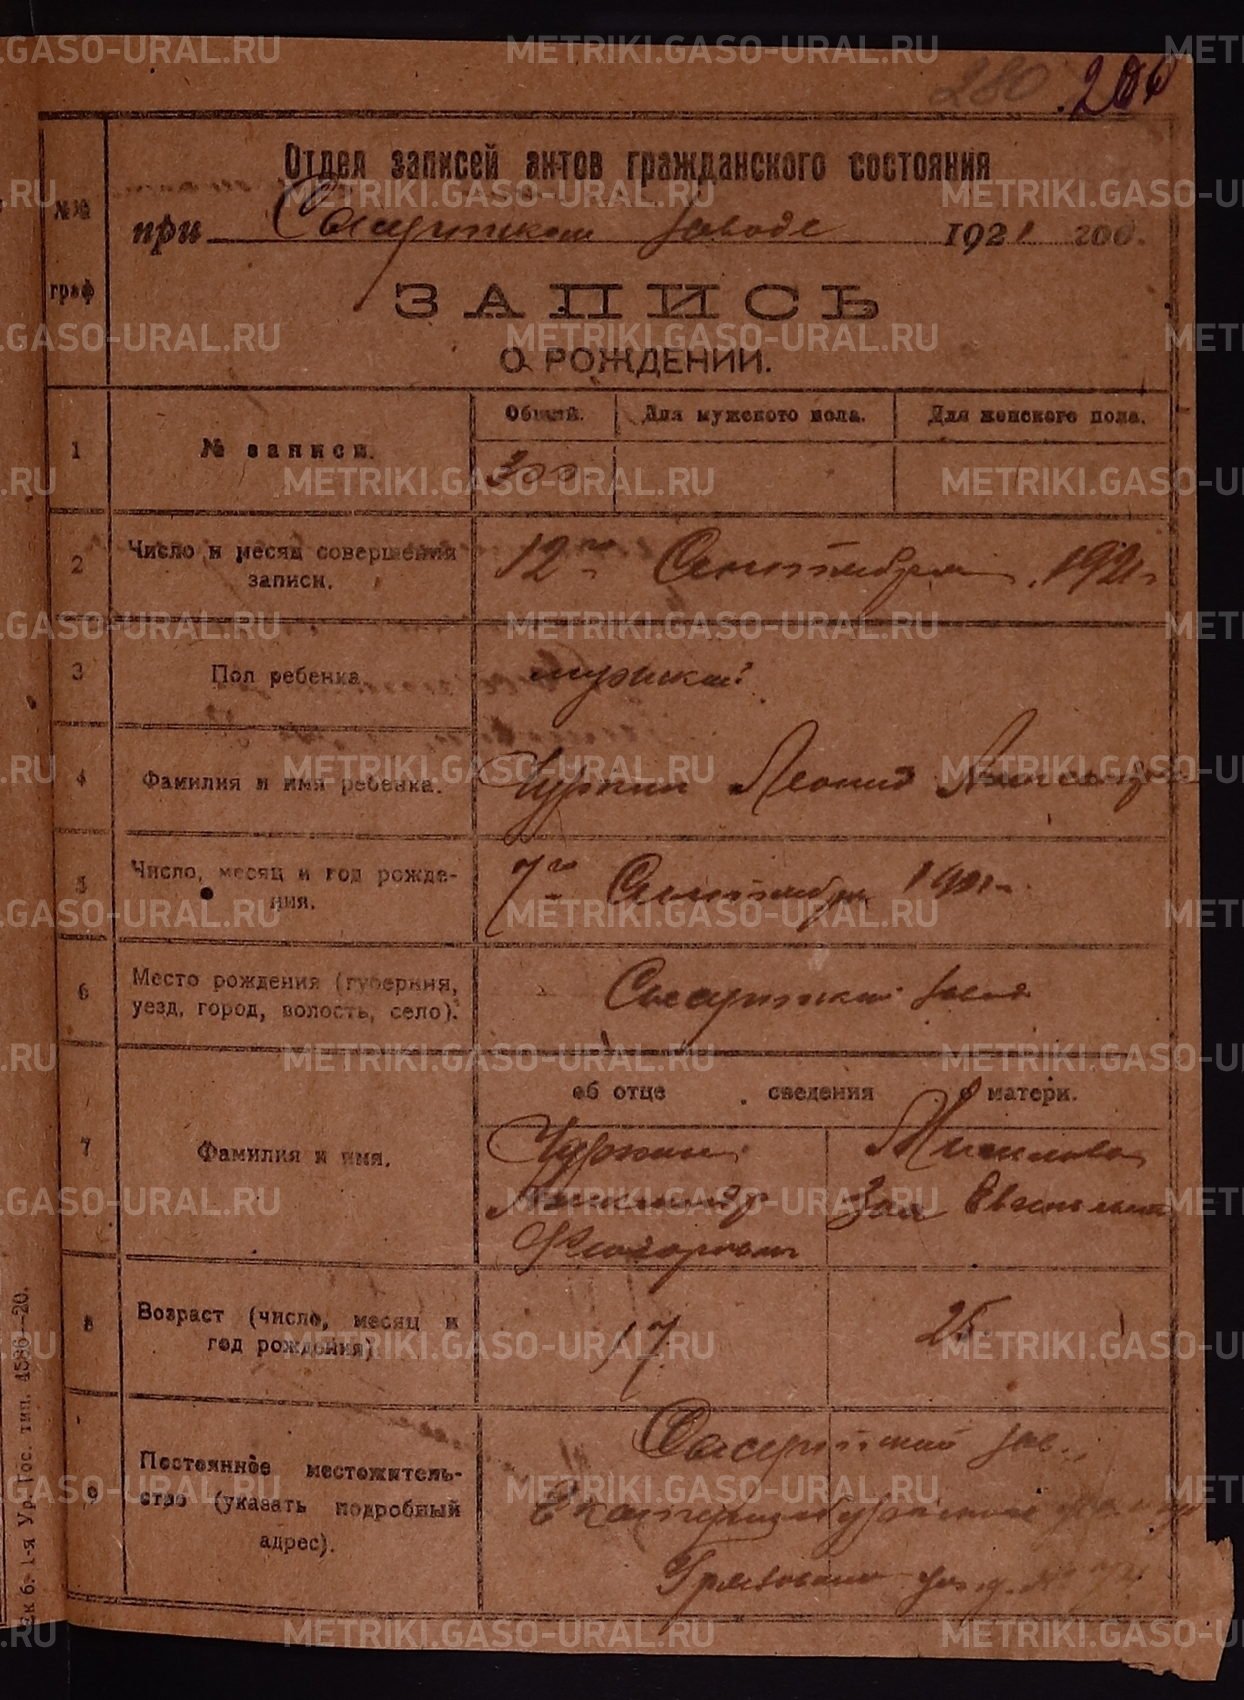 METRIKI.GASO-URAL.RU
280
206
№№ граф
Отдел записей актов гражданского состояния
при Сысертском заводе 1921 год.
ЗАПИСЬ
О РОЖДЕНИИ.
Общий. Для мужского пола. Для женского пола.
1 № записи. 300
2 Число и месяц совершения записи. 12го Сентября 1921 г.
3 Пол ребенка мужской
4 Фамилия и имя ребенка. Чуркин Леонид
5 Число, месяц и год рожде-
ния. 7го Сентября 1921 г.
6 Место рождения (губерния,
уезд, город, волость, село). Сысертский завод
об отце сведения о матери.
7 Фамилия и имя. Чуркин
Александр Зоя
Федорович
8 Возраст (число, месяц и
год рождения) 17 25
9 Постоянное местожитель-
ство (указать подробный
адрес). Сысертский зав.
Екатеринбургской
эк 6. 1-я Ур. Гос. тип. 4586—20.